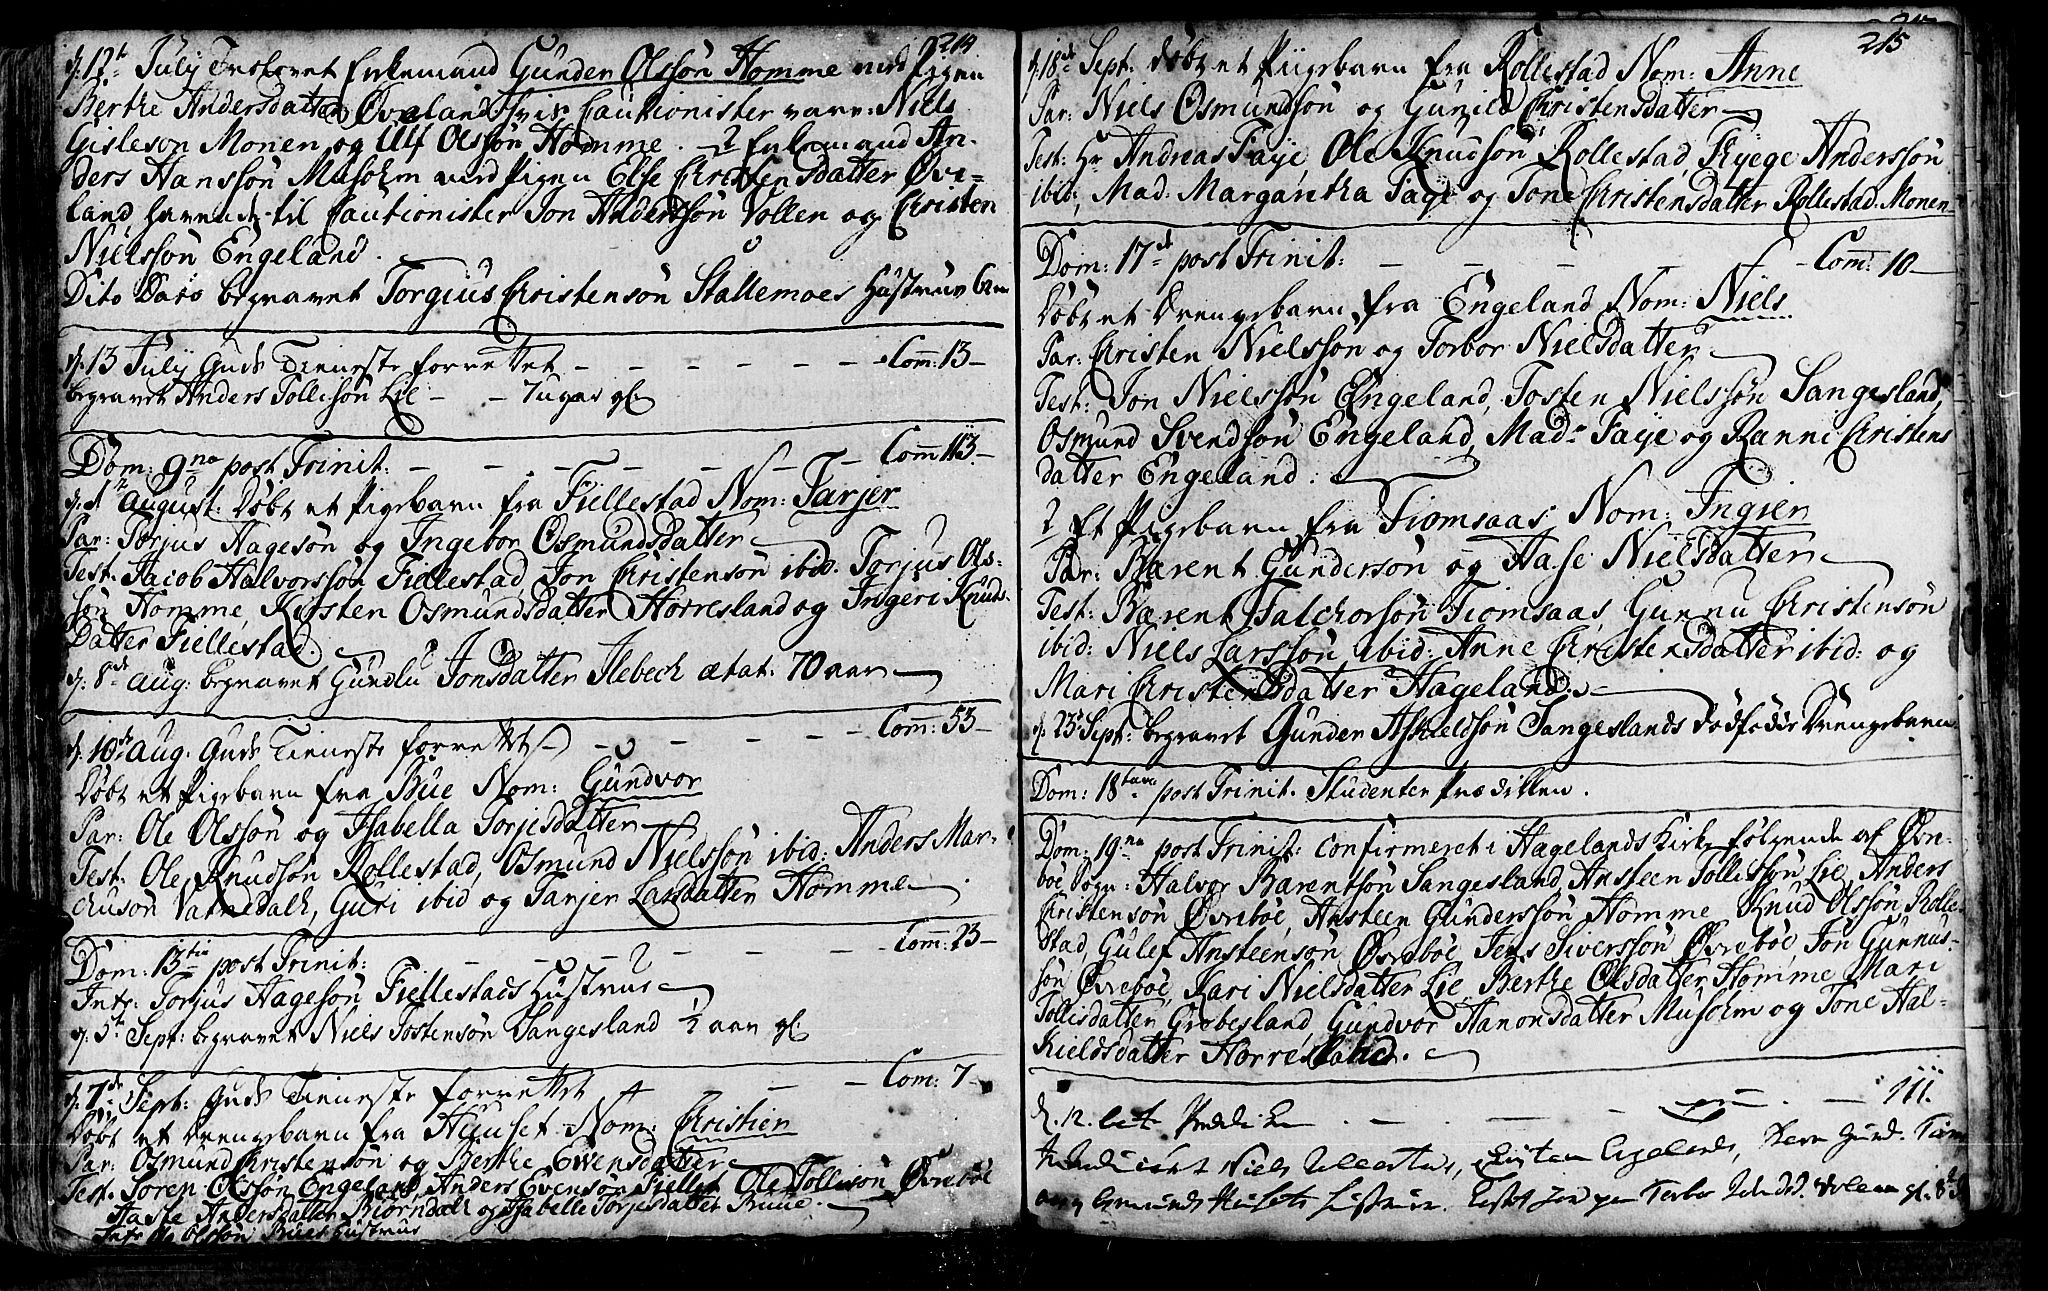 214
d: 12t July Trolovet Enkemand Gunder Olssön Homme med Pigen
Berthe Andersdatter Øveland hvis Cautionister vare: Niels
Gisleson Monen og Ulf Olssön Homme. 2 Enkemand An-
ders Hanssön Musolm med Pigen Else Christensdatter Øve-
land, havende til Cautionister Jon Anderssön Vollen og Christen
Nielssön Engeland.
Dito Dato begravet Torgius Christensön Stallemoes Hustrue
d: 13 July Guds Tieneste forrettet — Com: 13
begravet Anders Tollissön Lie — 7 uger gl:
Dom: 9na post Trinit: — Com: 113
august: Döbt et Pigebarn fra Fiellestad Nom: Tarjer
Par: Torjus Hagesön og Ingebor Osmundsdatter
Test. Jacob Halvorssön Fiellestad, Jon Christensön ibid. Torjus Ols-
sön Homme, Kirsten Osmundsdatter Horresland og Ingeri Knuds-
Datter Fiellestad.
d: 8de aug: begravet Gunlu Jonsdatter Ilebech ætat: 70 aar
d: 10de aug. Guds Tieneste forrettet — Com: 53
Döbt et Pigebarn fra Bue Nom: Gundvor
Par: Ole Olssön og Isabella Torjesdatter
Test. Ole Knudsön Rollestad, Osmund Nielssön ibid: Anders Mar-
chuson Vatnedalk, Guri ibid og Tarjer Larsdatter Homme
Dom: 13tia post Trinit: — Com: 23
Intr: Torjus Hagesön Fiellestads Hustrue
d: 5t Sept: begravet Niels Tostensön Sangesland ½ aar gl:
d: 7de Sept: Guds Tieneste forrettet — Com: 7
Döbt et Drengebarn fra Huuset Nom: Christien
Par: Osmund Christensön og Berthe Evensdatter
Test. Soren Olssön Engeland, Anders Evensön Fielle Ole Tollisön Øvreböe
Haste Andersdatter Biorndalk og Isabelle Torjesdatter Buue.
Intr Ole Olssön Bues Hustrue
215
d: 18de Sept: döbt et Piigebarn fra Rollestad Nom: Anne
Par: Niels Osmundsön og Gunild Christensdatter
Test: Hr Andreas Faye, Ole Knudsön Rollestad, Tryege Anderssön
ibid, Mad. Margaretha Faye og Tone Christensdatter Rollestad. Monen
Dom: 17de post Trinit: — Com: 10
Döbt et Drengebarn fra Engeland Nom: Niels
Par: Christen Nielsson og Torbor Nielsdatter
Test: Jon Nielssön Engeland, Tosten Nielssön Sangesland,
Osmund Svendsön Engeland, Mad: Faye og Ranni Christens
datter Engeland.
2 Et Pigebarn fra Fiomsaas, Nom: Ingier
Par: Barent Gundersön og Hase Nielsdatter
Test: Barent Falchorsön Fiomsaas, Gunnu Christensön
ibid: Niels Larssön ibid: Anne Christensdatter ibid: og
Mari Christensdatter Hageland.
d: 23t Sept: begravet Gunder Askieldsön Sangeslands Dödfödde Drengebarn
Dom: 18tava post Trinit. Studenter prædikken.
Dom: 19na post Trinit: confirmeret i Hagelands Kirke fölgende af Øvre-
böe Sogn: Halvor Barentsön Sangesland, Ansteen Tollissön Lie, Anders
Christensön Øvreböe, Ansteen Gunderssön Homme, Knud Olssön Rolle-
stad, Gulef Ansteensön Øvreböe, Jens Siverssön Øvreböe, Jon Gunnus-
sön Øvreböe, Kari Nielsdatter Lie, Berthe Olsdatter Homme, Mari
Tollisdatter Grobesland, Gundvor Aanonsdatter Musolm og Tone Hal-
kieldsdatter Horresland.
d. 12. — 111.
Niels